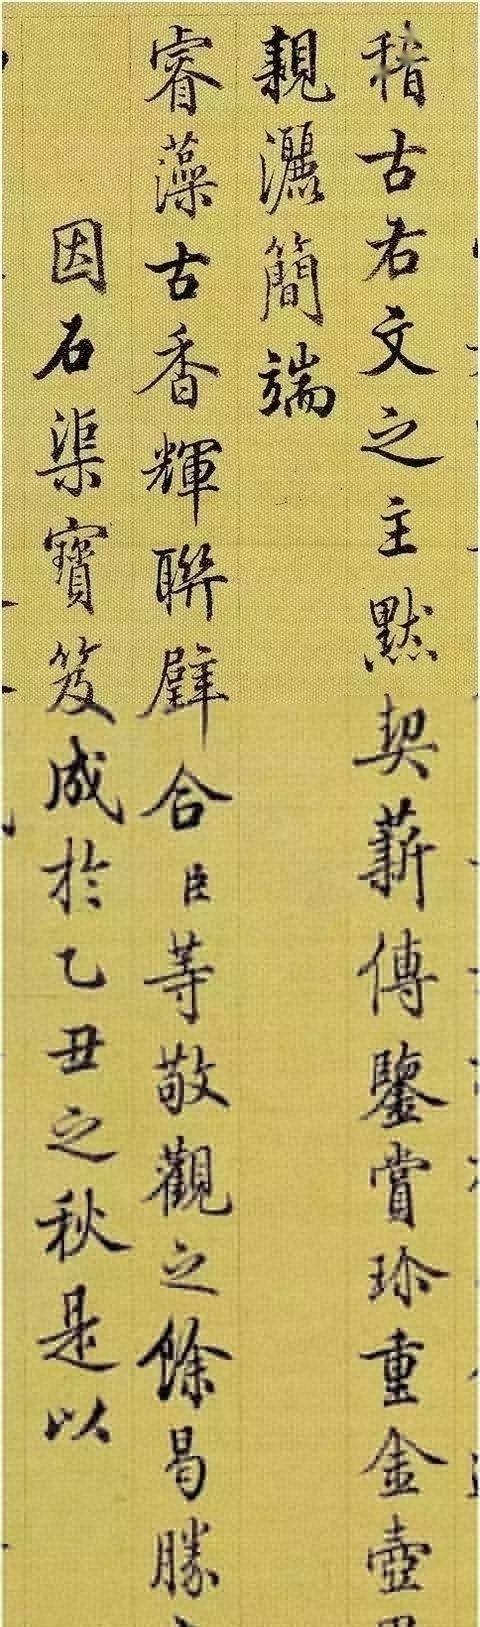 稽古右文之主默契薪傳鑒賞珍重金壺
親灑簡端
睿藻古香輝聯璧合臣等敬觀之餘曷勝
因石渠寶笈成於乙丑之秋是以